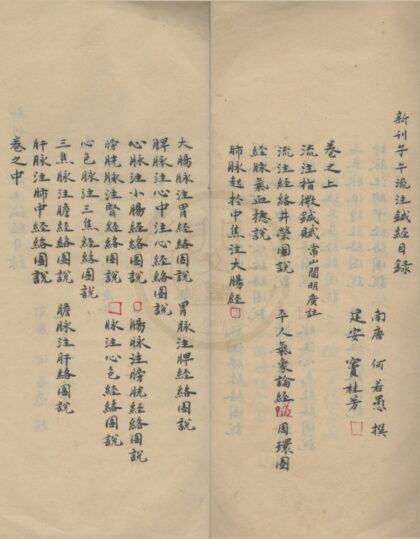 新刊子午流注鍼經目錄
南唐 何若愚 撰
建安 竇桂芳 □
卷之上
流注指微鍼賦 常山閻明廣註
流注經絡井滎圖說 平人氣象論經隧周環圖
經脉氣血摠說
肺脉起於中焦注大腸經□
大腸脉注胃經絡圖說 胃脉注脾經絡圖說
脾脉注心中注心經絡圖說
心脉注小腸經絡圖說 □腸脉注膀胱經絡圖說
膀胱脉注腎經絡圖說 □脉注心包經絡圖說
心包脉注三焦經絡圖說
三焦脉注膽經絡圖說 膽脉注肝經絡圖說
肝脉注肺中經絡圖說
卷之中